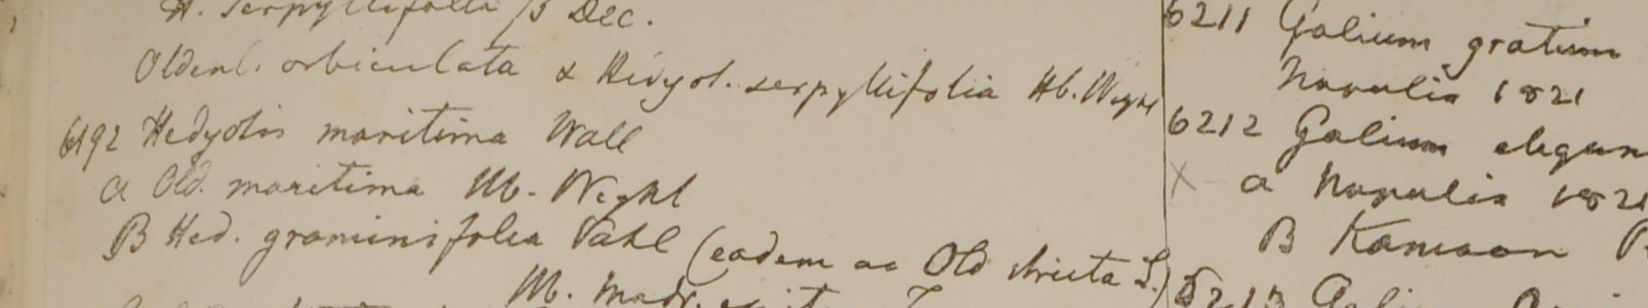 H. serpyllifolia β Dec.
Oldenl. orbiculata & Hedyot. serpyllifolia Hb. Wight
6192 Hedyotis maritima Wall
a Old. maritima Hb. Wight
B Hed. graminifolia Vahl (eadem ac Old stricta L.)
Hb. Madr.
6211 Galium gratum
Napalia 1821
6212 Galium elegan
X a Napalia 1821
B Kamaon
6213